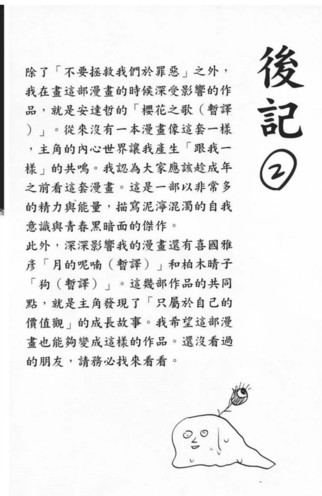 後記
②
除了「不要拯救我們於罪惡」之外，
我在畫這部漫畫的時候深受影響的作
品，就是安達哲的「櫻花之歌（暫譯
）」。從來沒有一本漫畫像這套一樣
，主角的內心世界讓我產生「跟我一
樣」的共鳴。我認為大家應該趁成年
之前看這套漫畫。這是一部以非常多
的精力與能量，描寫泥濘混濁的自我
意識與青春黑暗面的傑作。
此外，深深影響我的漫畫還有喜國雅
彥「月的呢喃（暫譯）」和柏木晴子
「狗（暫譯）」。這幾部作品的共同
點，就是主角發現了「只屬於自己的
價值觀」的成長故事。我希望這部漫
畫也能夠變成這樣的作品。還沒看過
的朋友，請務必找來看看。